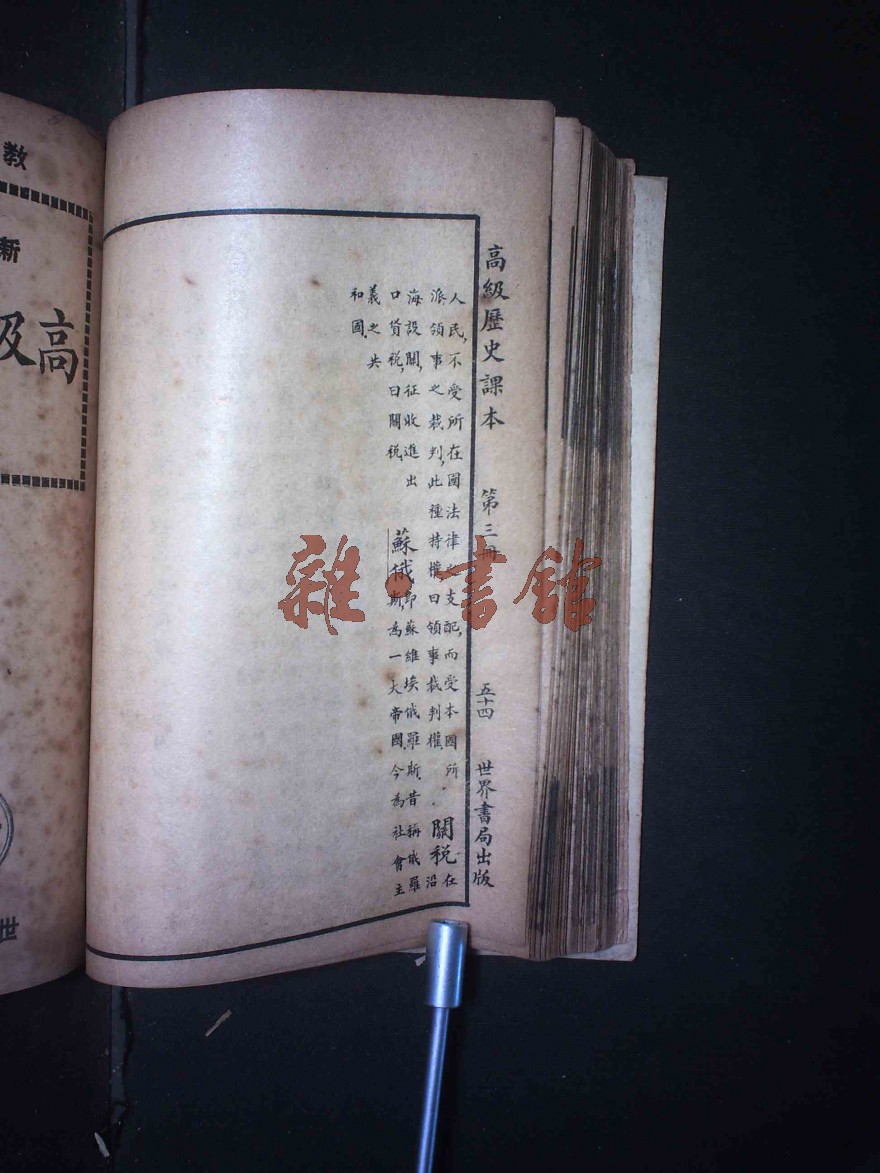 高級歷史課本 第三冊 五十四 世界書局出版
人民,不受所在國法律之支配,而受本國所
派領事之裁判,此種特權曰領事裁判權.
關稅
在
沿
海設關,征收進出
口貨稅,曰關稅.
蘇俄
即蘇維埃俄羅斯.昔稱俄羅
斯,為一大帝國.今為社會主
義之共
和國.
雜·書館
教
新
高級
世